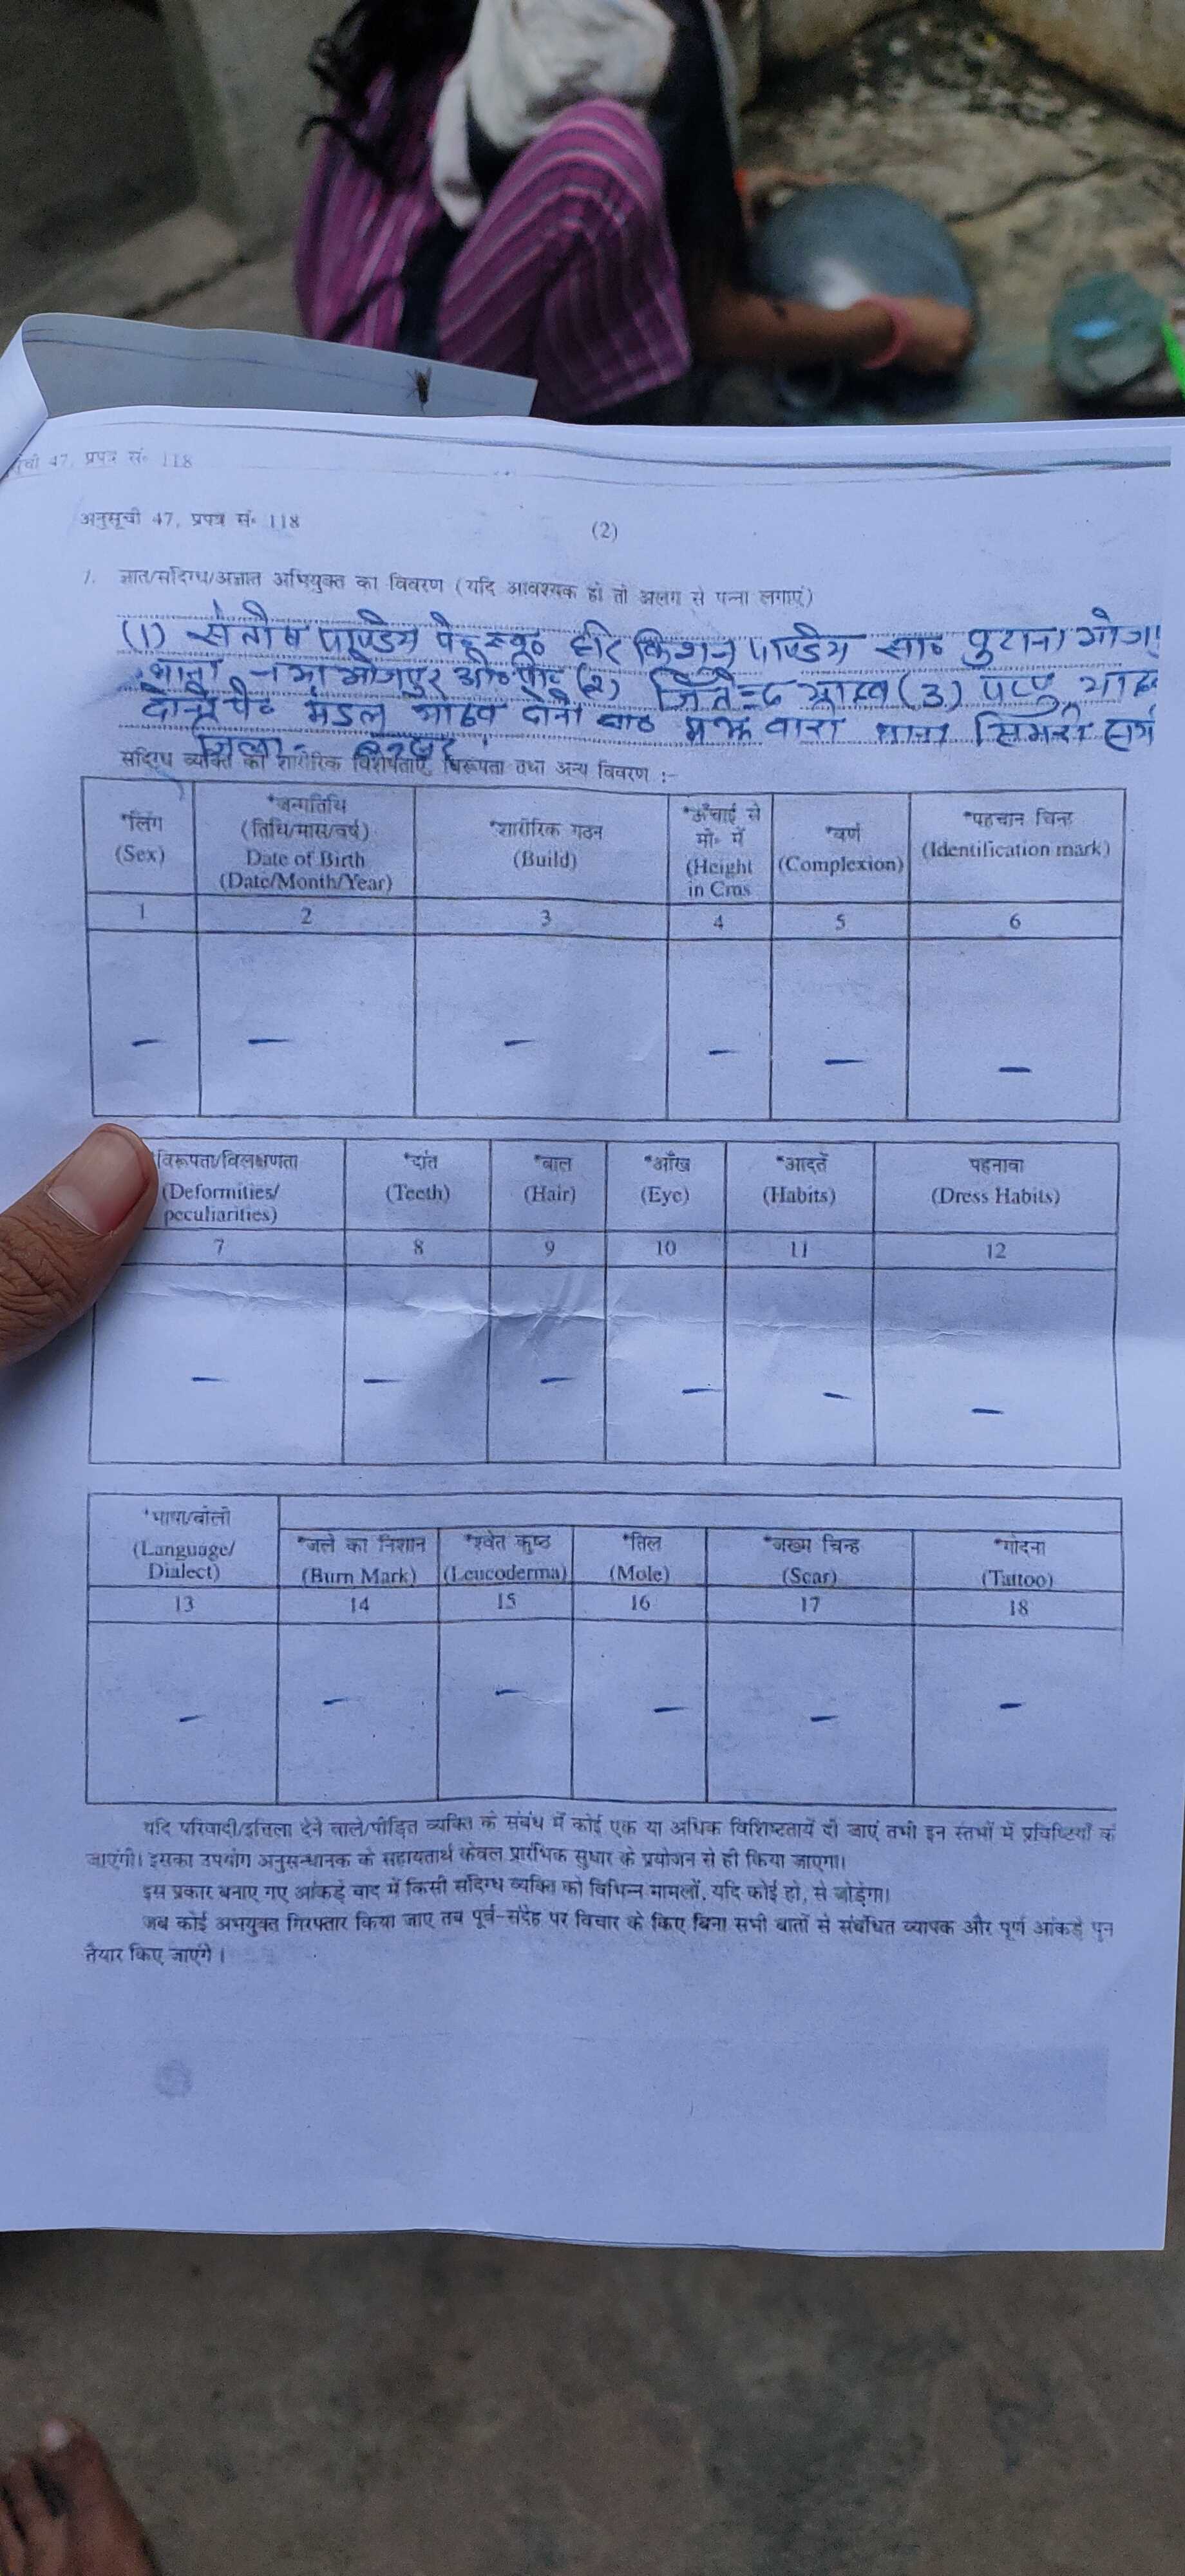 सूची 47, प्रपत्र सं॰ 118
अनुसूची 47, प्रपत्र सं॰ 118
(2)
7. ज्ञात/संदिग्ध/अज्ञात अभियुक्त का विवरण (यदि आवश्यक हो तो अलग से पन्ना लगाएं)
(1) संतोष पाण्डेय हरि किशुन पाण्डेय सा० पुराना भोज
थाना नया भोजपुर ओ०पी० (2) जितेन्द्र यादव (3) पप्पु याद
दोनो पे० मंडल यादव दोनो सा० थाना सिमरी
जिला- बक्सर।
संदिग्ध व्यक्ति की शारीरिक विशेषताएं, विरूपता तथा अन्य विवरण :-
*लिंग
(Sex)
*जन्मतिथि
(तिथि/मास/वर्ष)
Date of Birth
(Date/Month/Year)
*शारीरिक गठन
(Build)
*ऊँचाई से
मी॰ में
(Height
in Cms
*वर्ण
(Complexion)
*पहचान चिन्ह
(Identification mark)
1 2 3 4 5 6
– – – – – –
विरूपता/विलक्षणता
(Deformities/
peculiarities)
*दांत
(Teeth)
*बाल
(Hair)
*आँख
(Eye)
*आदतें
(Habits)
पहनावा
(Dress Habits)
7 8 9 10 11 12
– – – – – –
*भाषा/बोली
(Language/
Dialect)
*जले का निशान
(Burn Mark)
*श्वेत कुष्ठ
(Leucoderma)
*तिल
(Mole)
*जख्म चिन्ह
(Scar)
*गोदना
(Tattoo)
13 14 15 16 17 18
– – – – – –
यदि परिवादी/इत्तिला देने वाले/पीड़ित व्यक्ति के संबंध में कोई एक या अधिक विशिष्टतायें दी जाएं तभी इन स्तंभों में प्रविष्टियाँ क
जाएंगी। इसका उपयोग अनुसन्धानक के सहायतार्थ केवल प्रारंभिक सुधार के प्रयोजन से ही किया जाएगा।
इस प्रकार बनाए गए आंकड़े बाद में किसी संदिग्ध व्यक्ति को विभिन्न मामलों, यदि कोई हो, से जोड़ेगा।
जब कोई अभयुक्त गिरफ्तार किया जाए तब पूर्व-संदेह पर विचार के किए बिना सभी बातों से संबंधित व्यापक और पूर्ण आंकड़े पुन
तैयार किए जाएंगे।